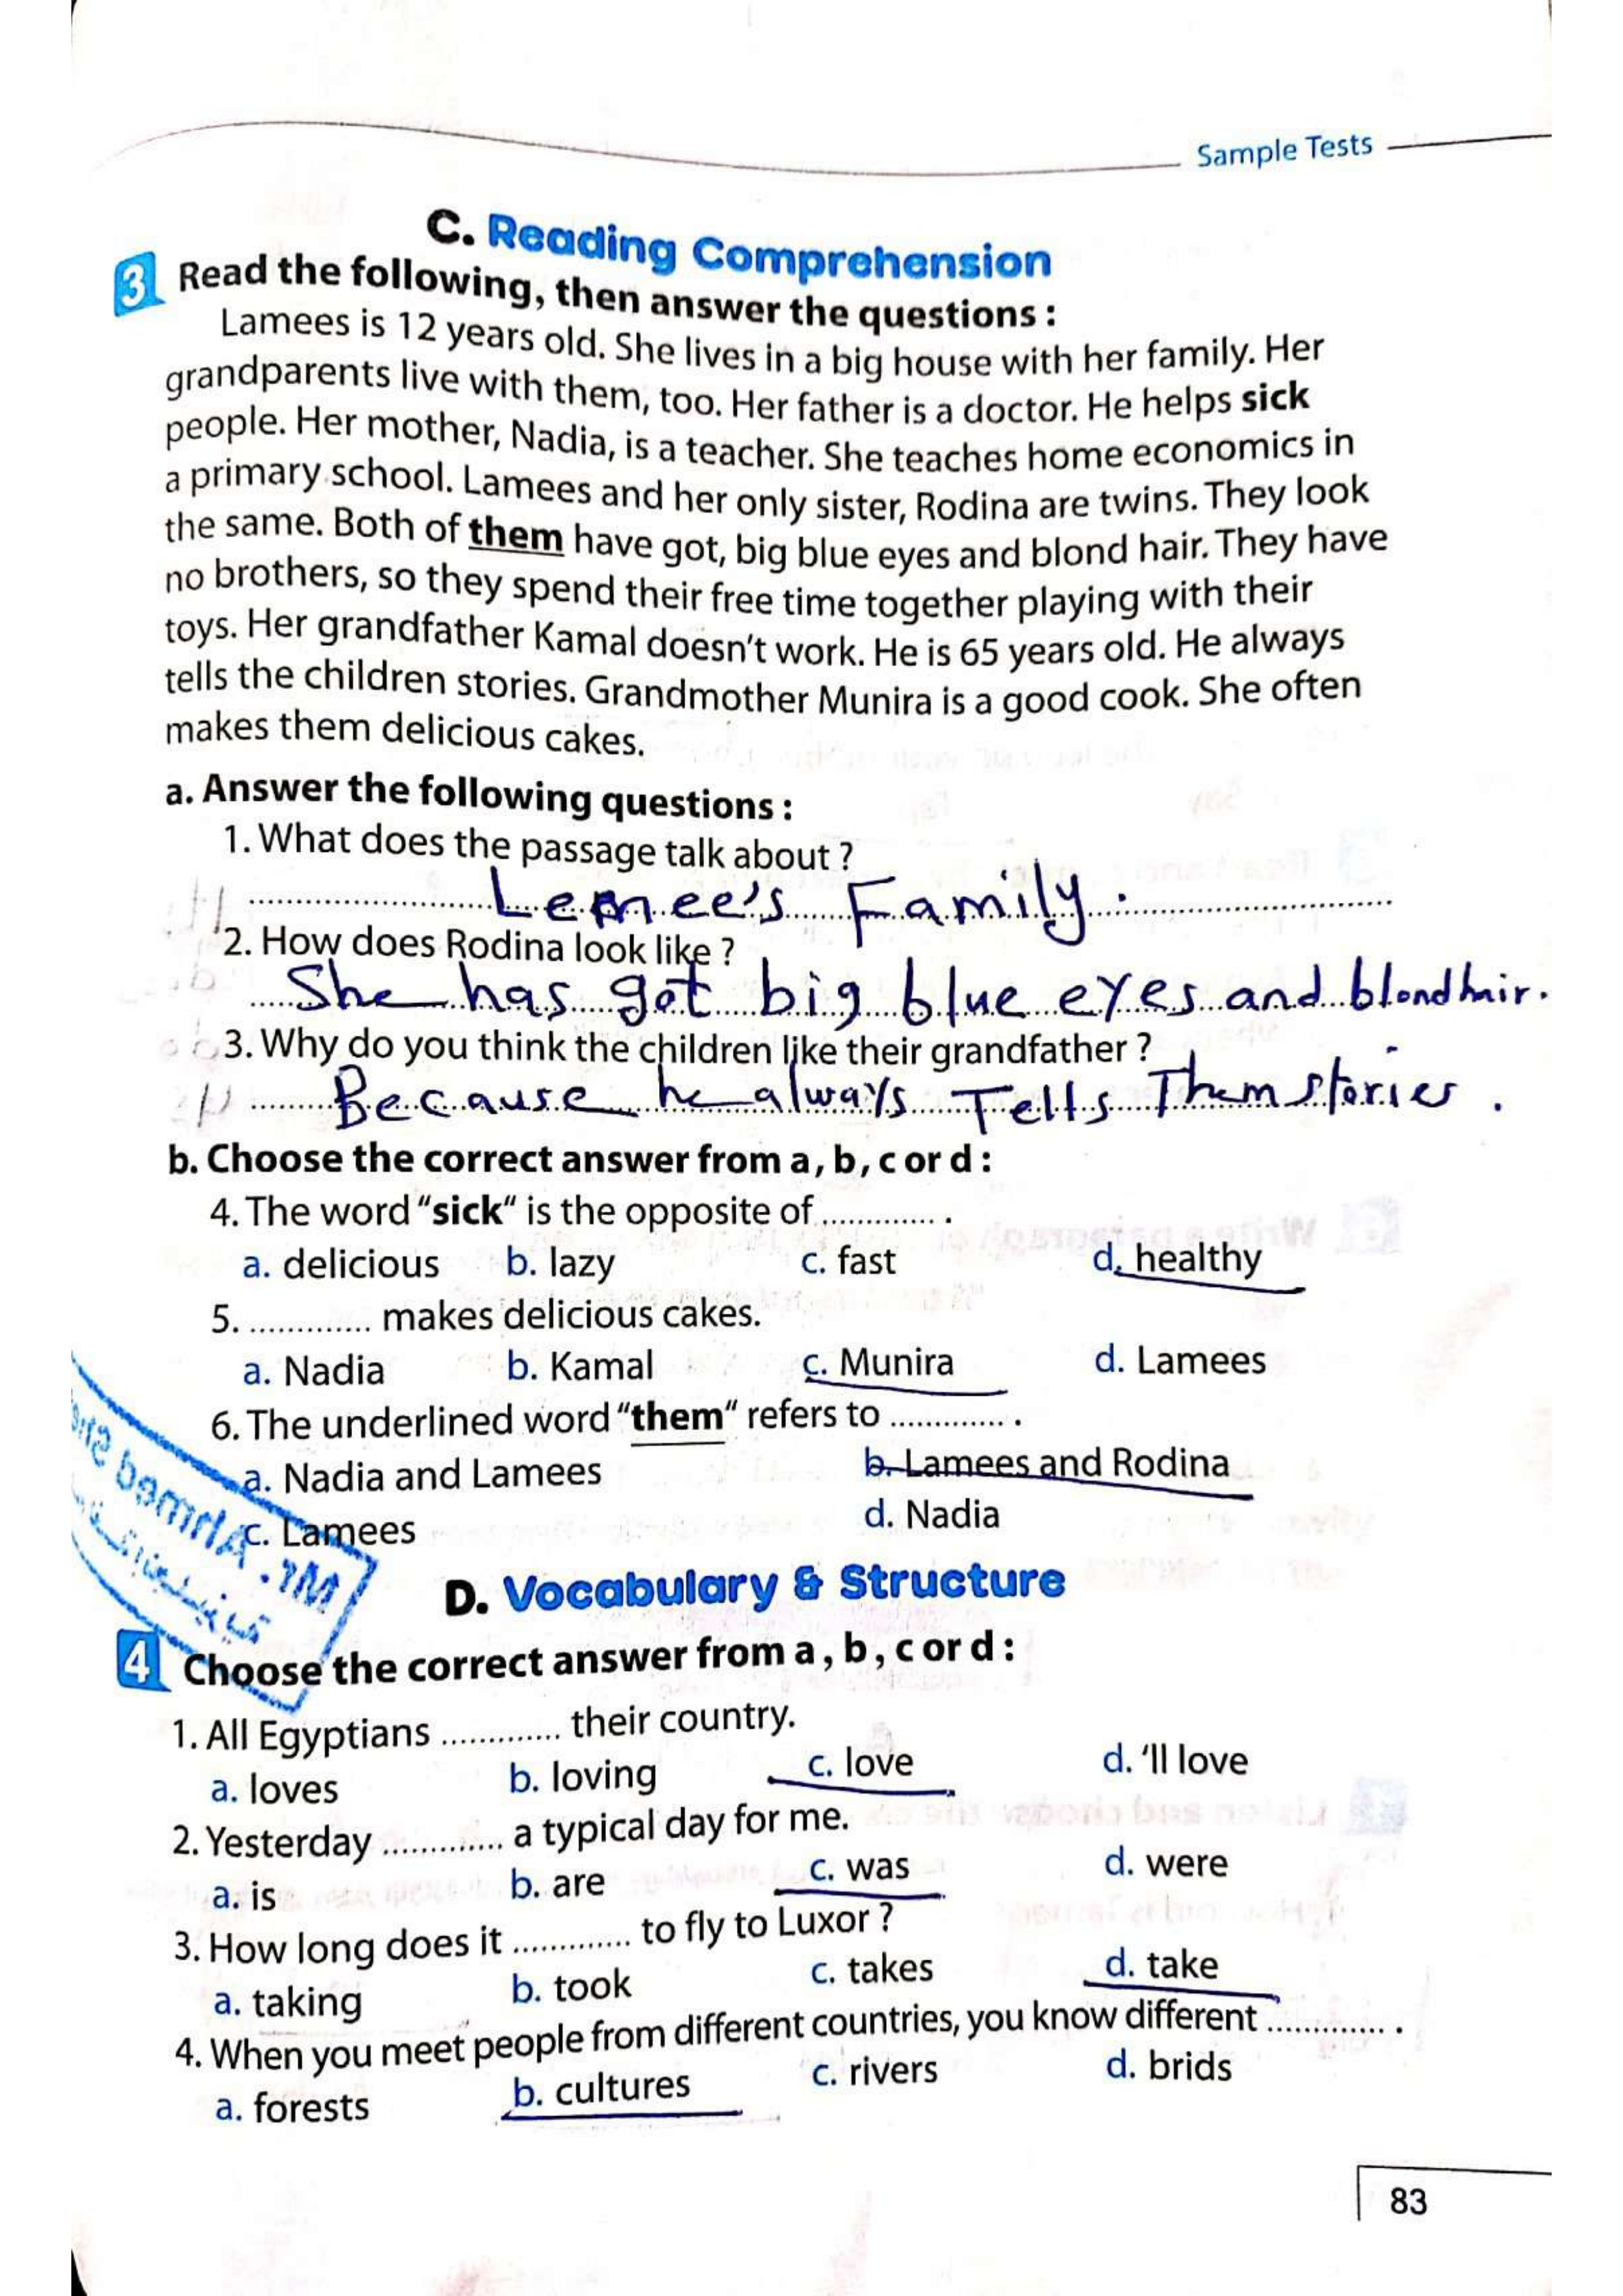 Sample Tests
C. Reading Comprehension
3 Read the following, then answer the questions :
Lamees is 12 years old. She lives in a big house with her family. Her
grandparents live with them, too. Her father is a doctor. He helps sick
people. Her mother, Nadia, is a teacher. She teaches home economics in
a primary school. Lamees and her only sister, Rodina are twins. They look
the same. Both of them have got, big blue eyes and blond hair. They have
no brothers, so they spend their free time together playing with their
toys. Her grandfather Kamal doesn't work. He is 65 years old. He always
tells the children stories. Grandmother Munira is a good cook. She often
makes them delicious cakes.
a. Answer the following questions :
1. What does the passage talk about ?
Lemee's Family.
2. How does Rodina look like ?
She has got big blue eyes and blond hair.
3. Why do you think the children like their grandfather ?
Because he always Tells Them stories.
b. Choose the correct answer from a, b, c or d :
4. The word "sick" is the opposite of ............ .
a. delicious b. lazy c. fast d. healthy
5. ............. makes delicious cakes.
a. Nadia b. Kamal c. Munira d. Lamees
6. The underlined word "them" refers to ............. .
a. Nadia and Lamees b. Lamees and Rodina
c. Lamees d. Nadia
Mr. Ahmed
D. Vocabulary & Structure
4 Choose the correct answer from a, b, c or d :
1. All Egyptians ............. their country.
a. loves b. loving c. love d. 'll love
2. Yesterday ............. a typical day for me.
a. is b. are c. was d. were
3. How long does it ............. to fly to Luxor ?
a. taking b. took c. takes d. take
4. When you meet people from different countries, you know different ............. .
a. forests b. cultures c. rivers d. brids
83